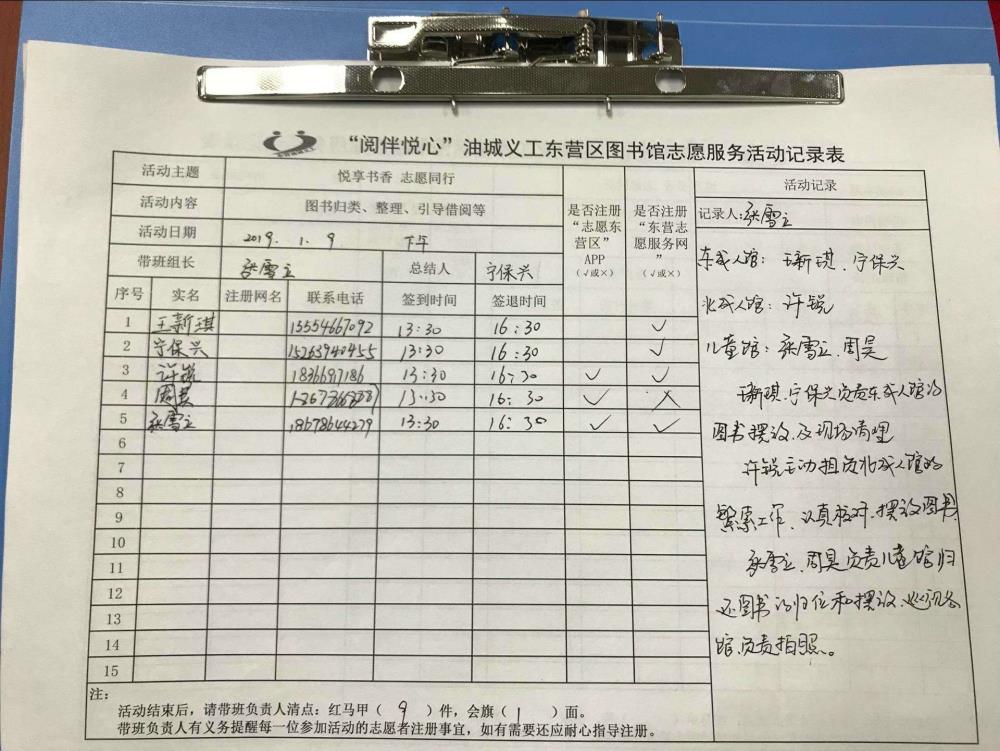 “阅伴悦心”油城义工东营区图书馆志愿服务活动记录表
活动主题 悦享书香 志愿同行
活动内容 图书归类、整理、引导借阅等
活动日期 2019. 1. 9 下午
带班组长 张雪立 总结人 宁保兴
是否注册“志愿东营区”APP（√或×）
是否注册“东营志愿服务网”（√或×）
序号 实名 注册网名 联系电话 签到时间 签退时间
1 王新琪 15554667092 13:30 16:30 √
2 宁保兴 15263940455 13:30 16:30 √
3 许锐 18366917186 13:30 16:30 √ √
4 周昊 13:30 16:30 √ ×
5 张雪立 18678644279 13:30 16:30 √ √
6
7
8
9
10
11
12
13
14
15
活动记录
记录人:张雪立
东成人馆：王新琪、宁保兴
北成人馆：许锐
儿童馆：张雪立、周昊
王新琪、宁保兴负责东成人馆的
图书摆放及现场清理
许锐主动担负北成人馆的
繁累工作、认真核对、摆放图书
张雪立、周昊负责儿童馆归
还图书的归位和摆放、巡视各
馆、负责拍照。
注：
活动结束后，请带班负责人清点：红马甲（ 9 ）件，会旗（ 1 ）面。
带班负责人有义务提醒每一位参加活动的志愿者注册事宜，如有需要还应耐心指导注册。